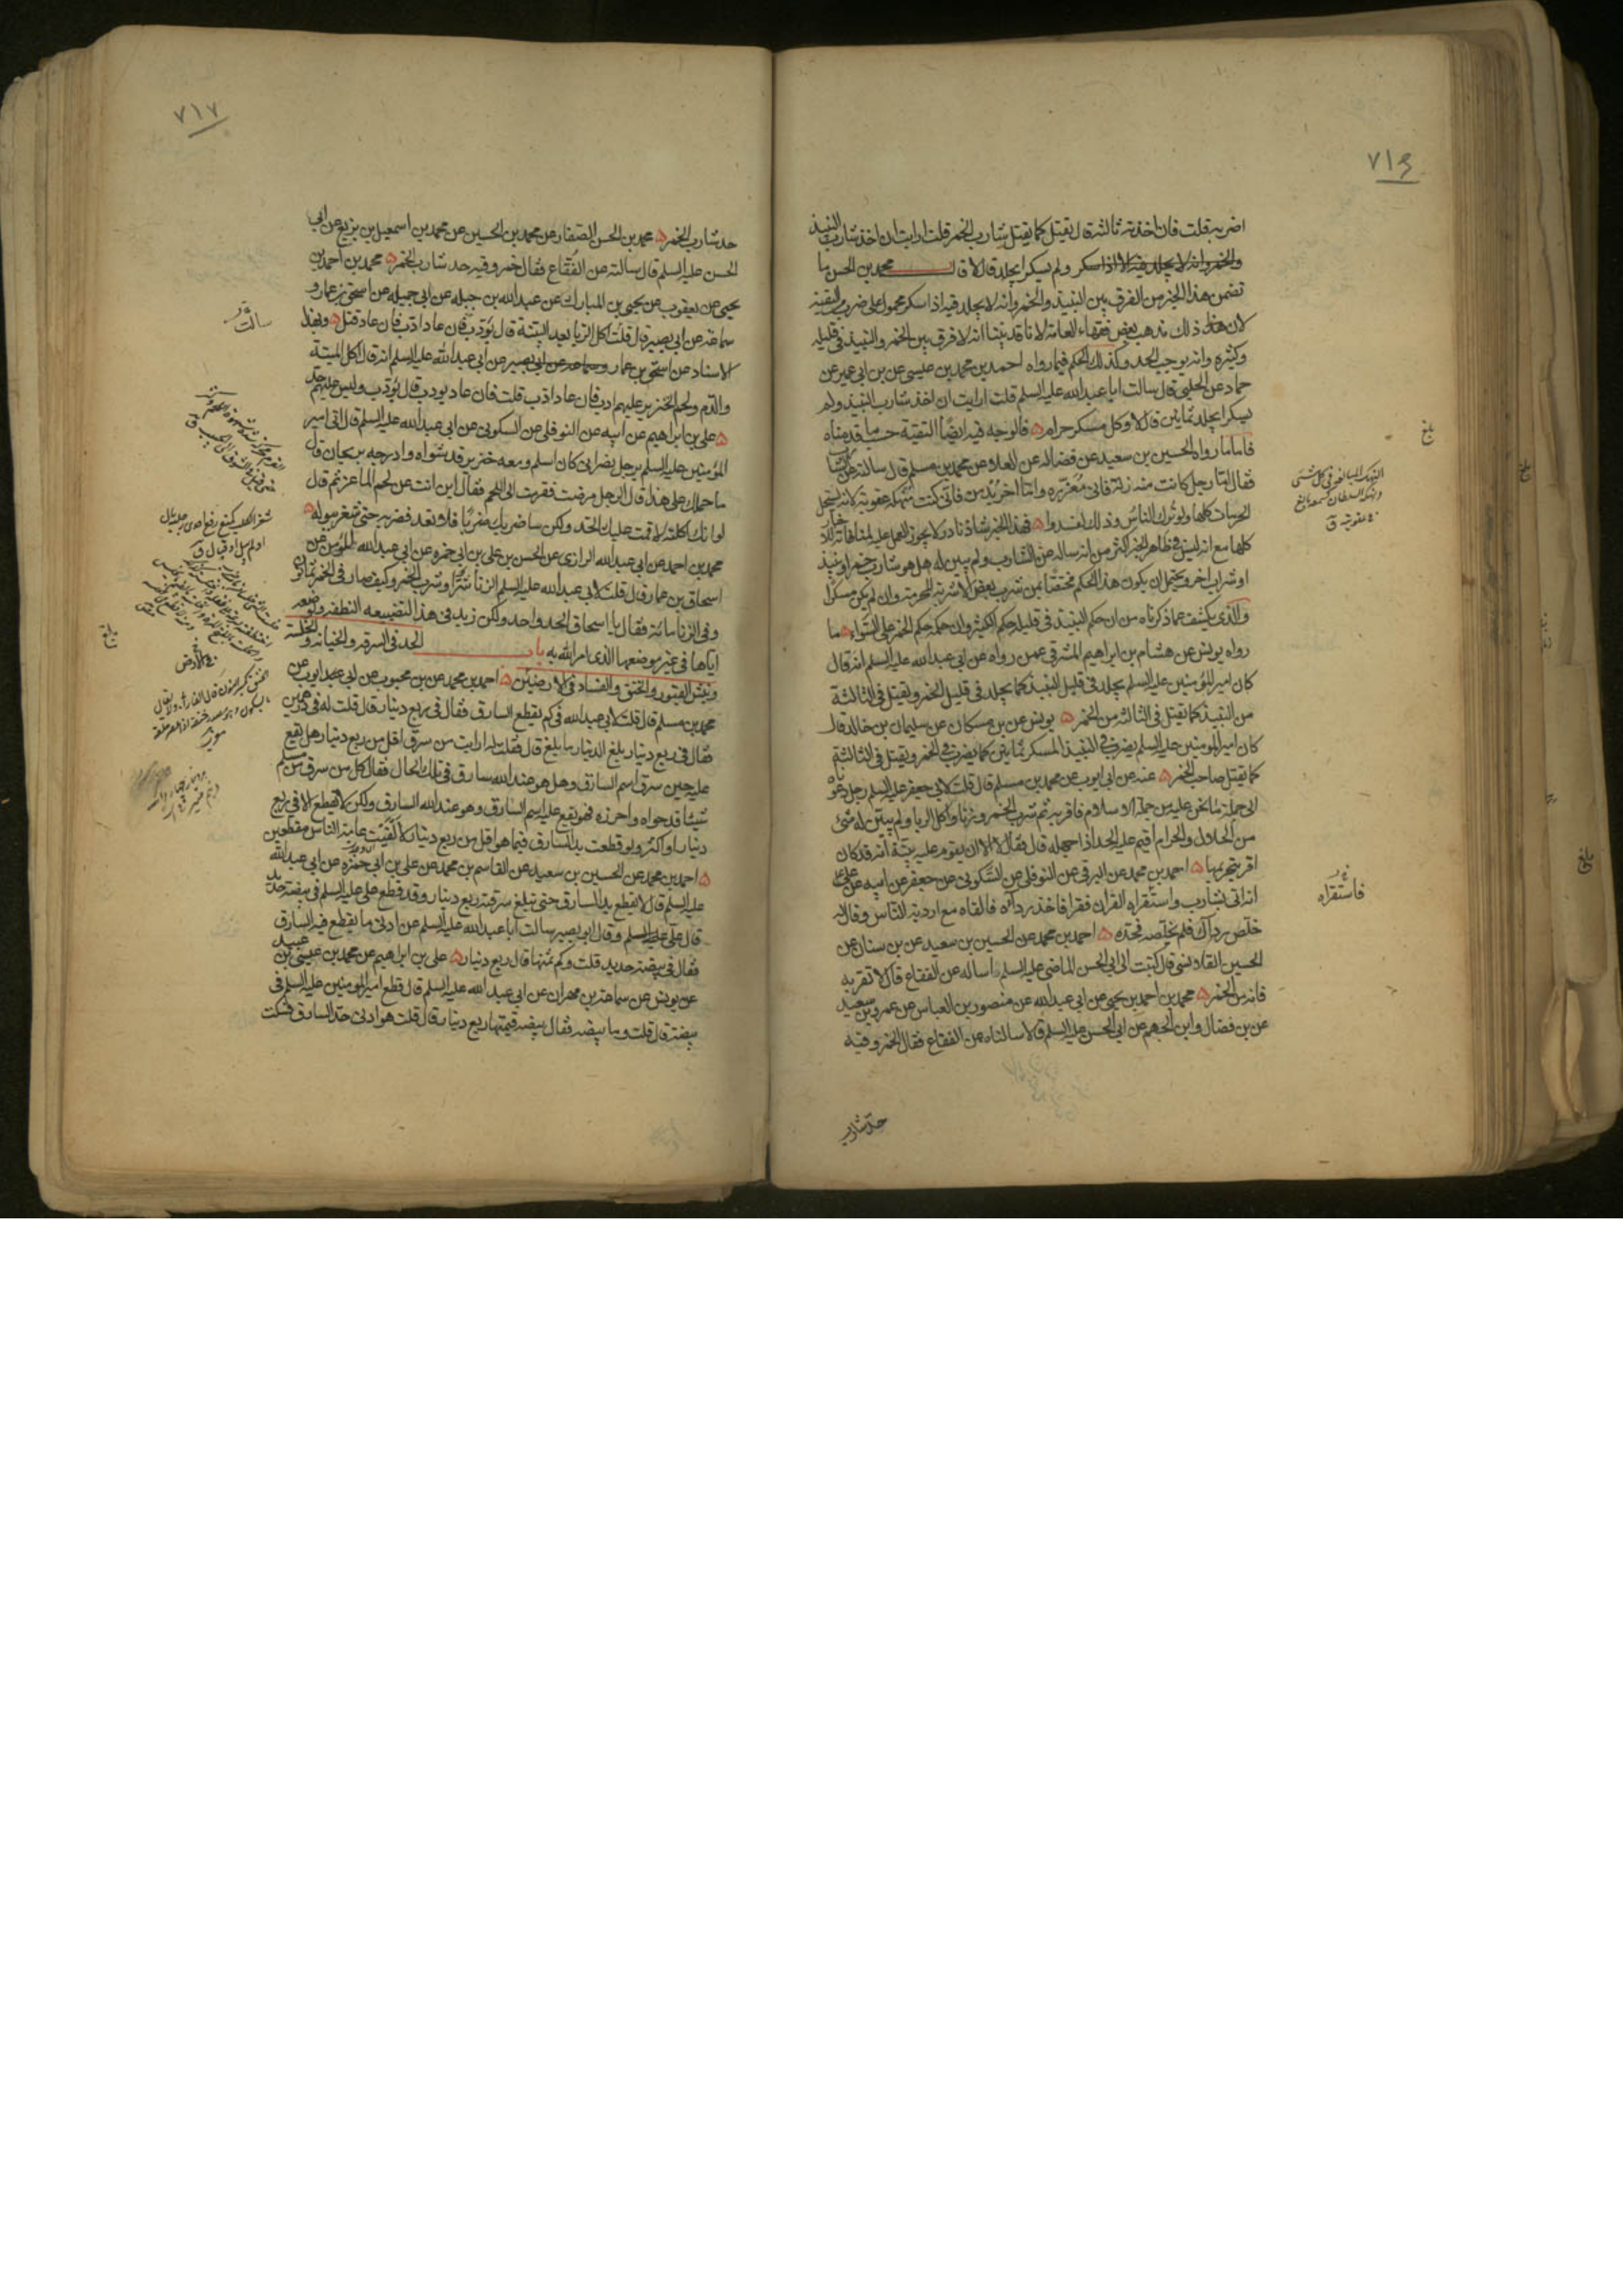 ٧١٦
اضربه قلت فان اخذته ثالثة قال يقتل كما يقتل شارب الخمر قلت ارايت ان اخذ شارب النبيذ
ولم يسكر ايجلد قال لا قال محمد بن الحسن ما
تضمن هذا الخبر من الفرق بين النبيذ والخمر وانه لا يجلد فيه الا اذا سكر محمول على ضرب من التقية
لان هذا ذلك مذهب بعض فقهاء العامة لانا قد بيّنا انه لا فرق بين الخمر والنبيذ في قليله
وكثيره وانه يوجب الحد وكذلك الحكم فيما رواه احمد بن محمد بن عيسى عن بن ابي عمير عن
حماد عن الحلبي قال سالت ابا عبد الله عليه السلم قلت ارايت ان اخذ شارب النبيذ ولم
يسكر ايجلد ثمانين قال لا وكل مسكر حرام فالوجه فيه ايضًا التقية حسب ما قدمناه
فاما ما رواه الحسين بن سعيد عن فضاله عن العلا عن محمد بن مسلم قال سالته عن الشارب
فقال امّا رجل كانت منه زلّة فانى مُعَزّره وامّا اخر يُدمن فانى كنت مُنهكه عقوبة لانه يستحل
الحرمات كلها ولو تُرك الناس وذلك لفسدوا فهذا الخبر شاذ نادر لا يجوز العمل عليه لمنافاته للاخبار
كلها مع انه ليس فى ظاهر الخبر اكثر من انه ساله عن الشارب ولم يبين له هل هو شارب خمر او نبيذ
او شراب اخر ويحتمل ان يكون هذا الحكم مختصًّا بمن شرب بعض الاشربة المحرمة وان لم يكن مسكرًا
والذى يكشف عما ذكرناه من ان حكم النبيذ فى قليله حكم الكثير وان حكمه حكم الخمر على السّواء ما
رواه يونس عن هشام بن ابراهيم المشرقى عمن رواه عن ابى عبد الله عليه السلم انه قال
كان امير المؤمنين عليه السلم يجلد فى قليل النبيذ كما يجلد فى قليل الخمر ويقتل فى الثالثة
من النبيذ كما يقتل فى الثالثة من الخمر يونس عن بن مسكان عن سليمان بن خالد قال
كان امير المؤمنين عليه السلم يضرب فى النبيذ المسكر ثمانين كما يضرب فى الخمر ويقتل فى الثالثة
كما يقتل صاحب الخمر عنه عن ابى ايوب عن محمد بن مسلم قال قلت لابى جعفر عليه السلم رجل دعوناه
الى جملة ما نحن عليه من جملة الاسلام فاقر به ثم شرب الخمر وزنا واكل الربا ولم يبيّن له شئ
من الحلال والحرام اقيم عليه الحد اذا جهله قال فقال لا الا ان يقوم عليه بيّنة انه قد كان
اقر بتحريمها احمد بن محمد عن البرقى عن النوفلى عن السّكونى عن جعفر عن ابيه عن علىّ
انه اتى بشارب واستقراه القران فقرا فاخذ رداءه فالقاه مع اردية النّاس وقال له
خلّص رداءك فلم يخلّصه فحدّه احمد بن محمد عن الحسين بن سعيد عن بن سنان عن
الحسين القلانسى قال كتبت الى ابى الحسن الماضى عليه السلم اساله عن الفقاع فقال لا تقربه
فانه من الخمر محمد بن احمد بن يحيى عن ابى عبد الله عن منصور بن العباس عن عمرو بن سعيد
عن بن فضال وابن الجهم عن ابى الحسن عليه السلم قالا سالناه عن الفقاع فقال الخمر وفيه
حدّ شارب
بلغ
فاستقراه
٧١٧
حد شارب الخمر محمد بن الحسن الصفار عن محمد بن الحسين عن محمد بن اسمعيل بن بزيع عن ابى
الحسن عليه السلم قال سالته عن الفُقّاع فقال خمر وفيه حد شارب الخمر محمد بن احمد بن
يحيى عن يعقوب عن يحيى بن المبارك عن عبد الله بن جبله عن ابى جميله عن اسحق بن عمار و
سماعة عن ابى بصير قال قلت اكل الربا بعد البيّنة قال يُؤدّب فان عاد ادّب فان عاد قتل وبهذا
الاسناد عن اسحق بن عمار وسماعة عن ابى بصير عن ابى عبد الله عليه السلم انه قال اكل الميتة
والدّم ولحم الخنزير عليهم ادب فان عاد ادّب قلت فان عاد يودب قال يُؤدّب وليس عليهم حدّ
على بن ابراهيم عن ابيه عن النوفلى عن السكونى عن ابى عبد الله عليه السلم قال اتى امير
المؤمنين عليه السلم برجل نصرانى كان اسلم ومعه خنزير قد شواه وادرجه بريحان قال
ما حملك على هذا قال الرجل مرضت فقرمت الى اللحم فقال اين انت عن لحم الماعز ثم قال
لو انك اكلته لاقمت عليك الحد ولكن ساضربك ضربًا فلا تعد فضربه حتى شغر ببوله
محمد بن احمد عن ابى عبد الله الرازى عن الحسن بن على بن ابى حمزه عن ابى عبد الله المؤمن عن
اسحاق بن عمار قال قلت لابى عبد الله عليه السلم الزنا شرّ او شرب الخمر وكيف صار فى الخمر ثمانون
وفى الزنا مائة فقال يا اسحاق الحد واحد ولكن زيد فى هذا لتضييعه النطفة ولوضعه
اياها فى غير موضعها الذى امر الله به باب الحد فى السرقه والخيانة والخلسة
ونبش القبور والخنق والفساد فى الارضين احمد بن محمد عن بن محبوب عن ابى ايوب عن
محمد بن مسلم قال قلت لابى عبد الله فى كم يقطع السارق فقال فى ربع دينار قال قلت له فى درهمين
فقال فى ربع دينار بلغ الدينار ما بلغ قال فقلت له ارايت من سرق اقل من ربع دينار هل يقع
عليه حين سرق اسم السارق وهل هو عند الله سارق فى تلك الحال فقال كل من سرق من مسلم
شيئًا قد حواه واحرزه فهو يقع عليه اسم السارق وهو عند الله السارق ولكن لا يقطع الا فى ربع
دينار او اكثر ولو قطعت يد السارق فيما هو اقل من ربع دينار لالفيت عامة الناس مقطعين
احمد بن محمد عن الحسين بن سعيد عن القاسم بن محمد عن على بن ابى حمزه عن ابى عبد الله
عليه السلم قال لا يقطع يد السارق حتى تبلغ سرقته ربع دينار وقد قطع على عليه السلم فى بيضة حديد
قال على وقال ابو بصير سالت ابا عبد الله عليه السلم عن ادنى ما يقطع فيه السارق
فقال فى بيضة حديد قلت وكم ثمنها قال ربع دينار على بن ابراهيم عن محمد بن عيسى بن عبيد
عن يونس عن سماعة بن مهران عن ابى عبد الله عليه السلم قال قطع امير المؤمنين عليه السلم فى
بيضة قال قلت وما بيضة فقال بيضة قيمتها ربع دينار قال قلت هو ادنى حدّ السارق فسكت
سالت